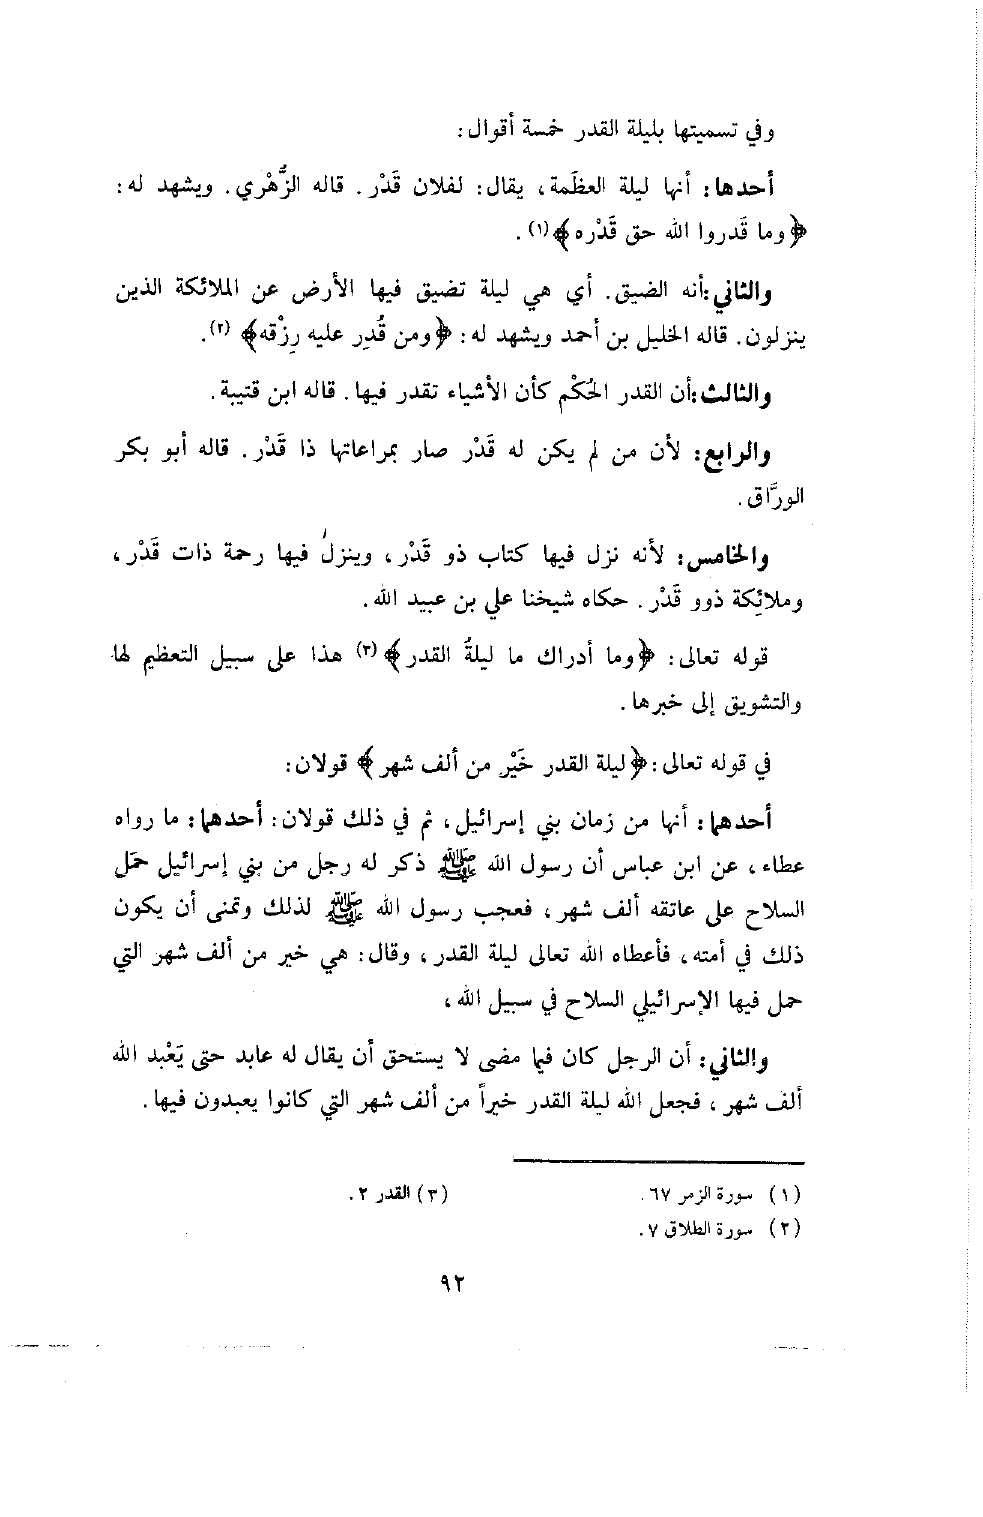 وفي تسميتها بليلة القدر خمسة أقوال:
أحدها: أنها ليلة العظَمة، يقال: لفلان قَدْر. قاله الزُّهْري. ويشهد له:
﴿وما قَدروا الله حق قَدْره﴾(١).
والثاني:أنه الضيق. أي هي ليلة تضيق فيها الأرض عن الملائكة الذين
ينزلون. قاله الخليل بن أحمد ويشهد له: ﴿ومن قُدِر عليه رِزْقه﴾ (٢).
والثالث:أن القدر الحُكْم كأن الأشياء تقدر فيها. قاله ابن قتيبة.
والرابع: لأن من لم يكن له قَدْر صار بمراعاتها ذا قَدْر. قاله أبو بكر
الورَّاق.
والخامس: لأنه نزل فيها كتاب ذو قَدْر، وينزلُ فيها رحمة ذات قَدْر،
وملائِكة ذوو قَدْر. حكاه شيخنا علي بن عبيد الله.
قوله تعالى: ﴿وما أدراك ما ليلةُ القدر﴾(٣) هذا على سبيل التعظيم لها
والتشويق إلى خبرها.
في قوله تعالى:﴿ليلة القدر خَيْر من ألف شهر﴾ قولان:
أحدهما: أنها من زمان بني إسرائيل، ثم في ذلك قولان: أحدهما: ما رواه
عطاء، عن ابن عباس أن رسول الله ﷺ ذكر له رجل من بني إسرائيل حمَل
السلاح على عاتقه ألف شهر، فعجب رسول الله ﷺ لذلك وتمنى أن يكون
ذلك في أمته، فأعطاه الله تعالى ليلة القدر، وقال: هي خير من ألف شهر التي
حمل فيها الإسرائيلي السلاح في سبيل الله،
والثاني: أن الرجل كان فيما مضى لا يستحق أن يقال له عابد حتى يَعْبد الله
ألف شهر، فجعل الله ليلة القدر خيراً من ألف شهر التي كانوا يعبدون فيها.
(١) سورة الزمر ٦٧.
(٢) سورة الطلاق ٧.
(٣) القدر ٢.
٩٢